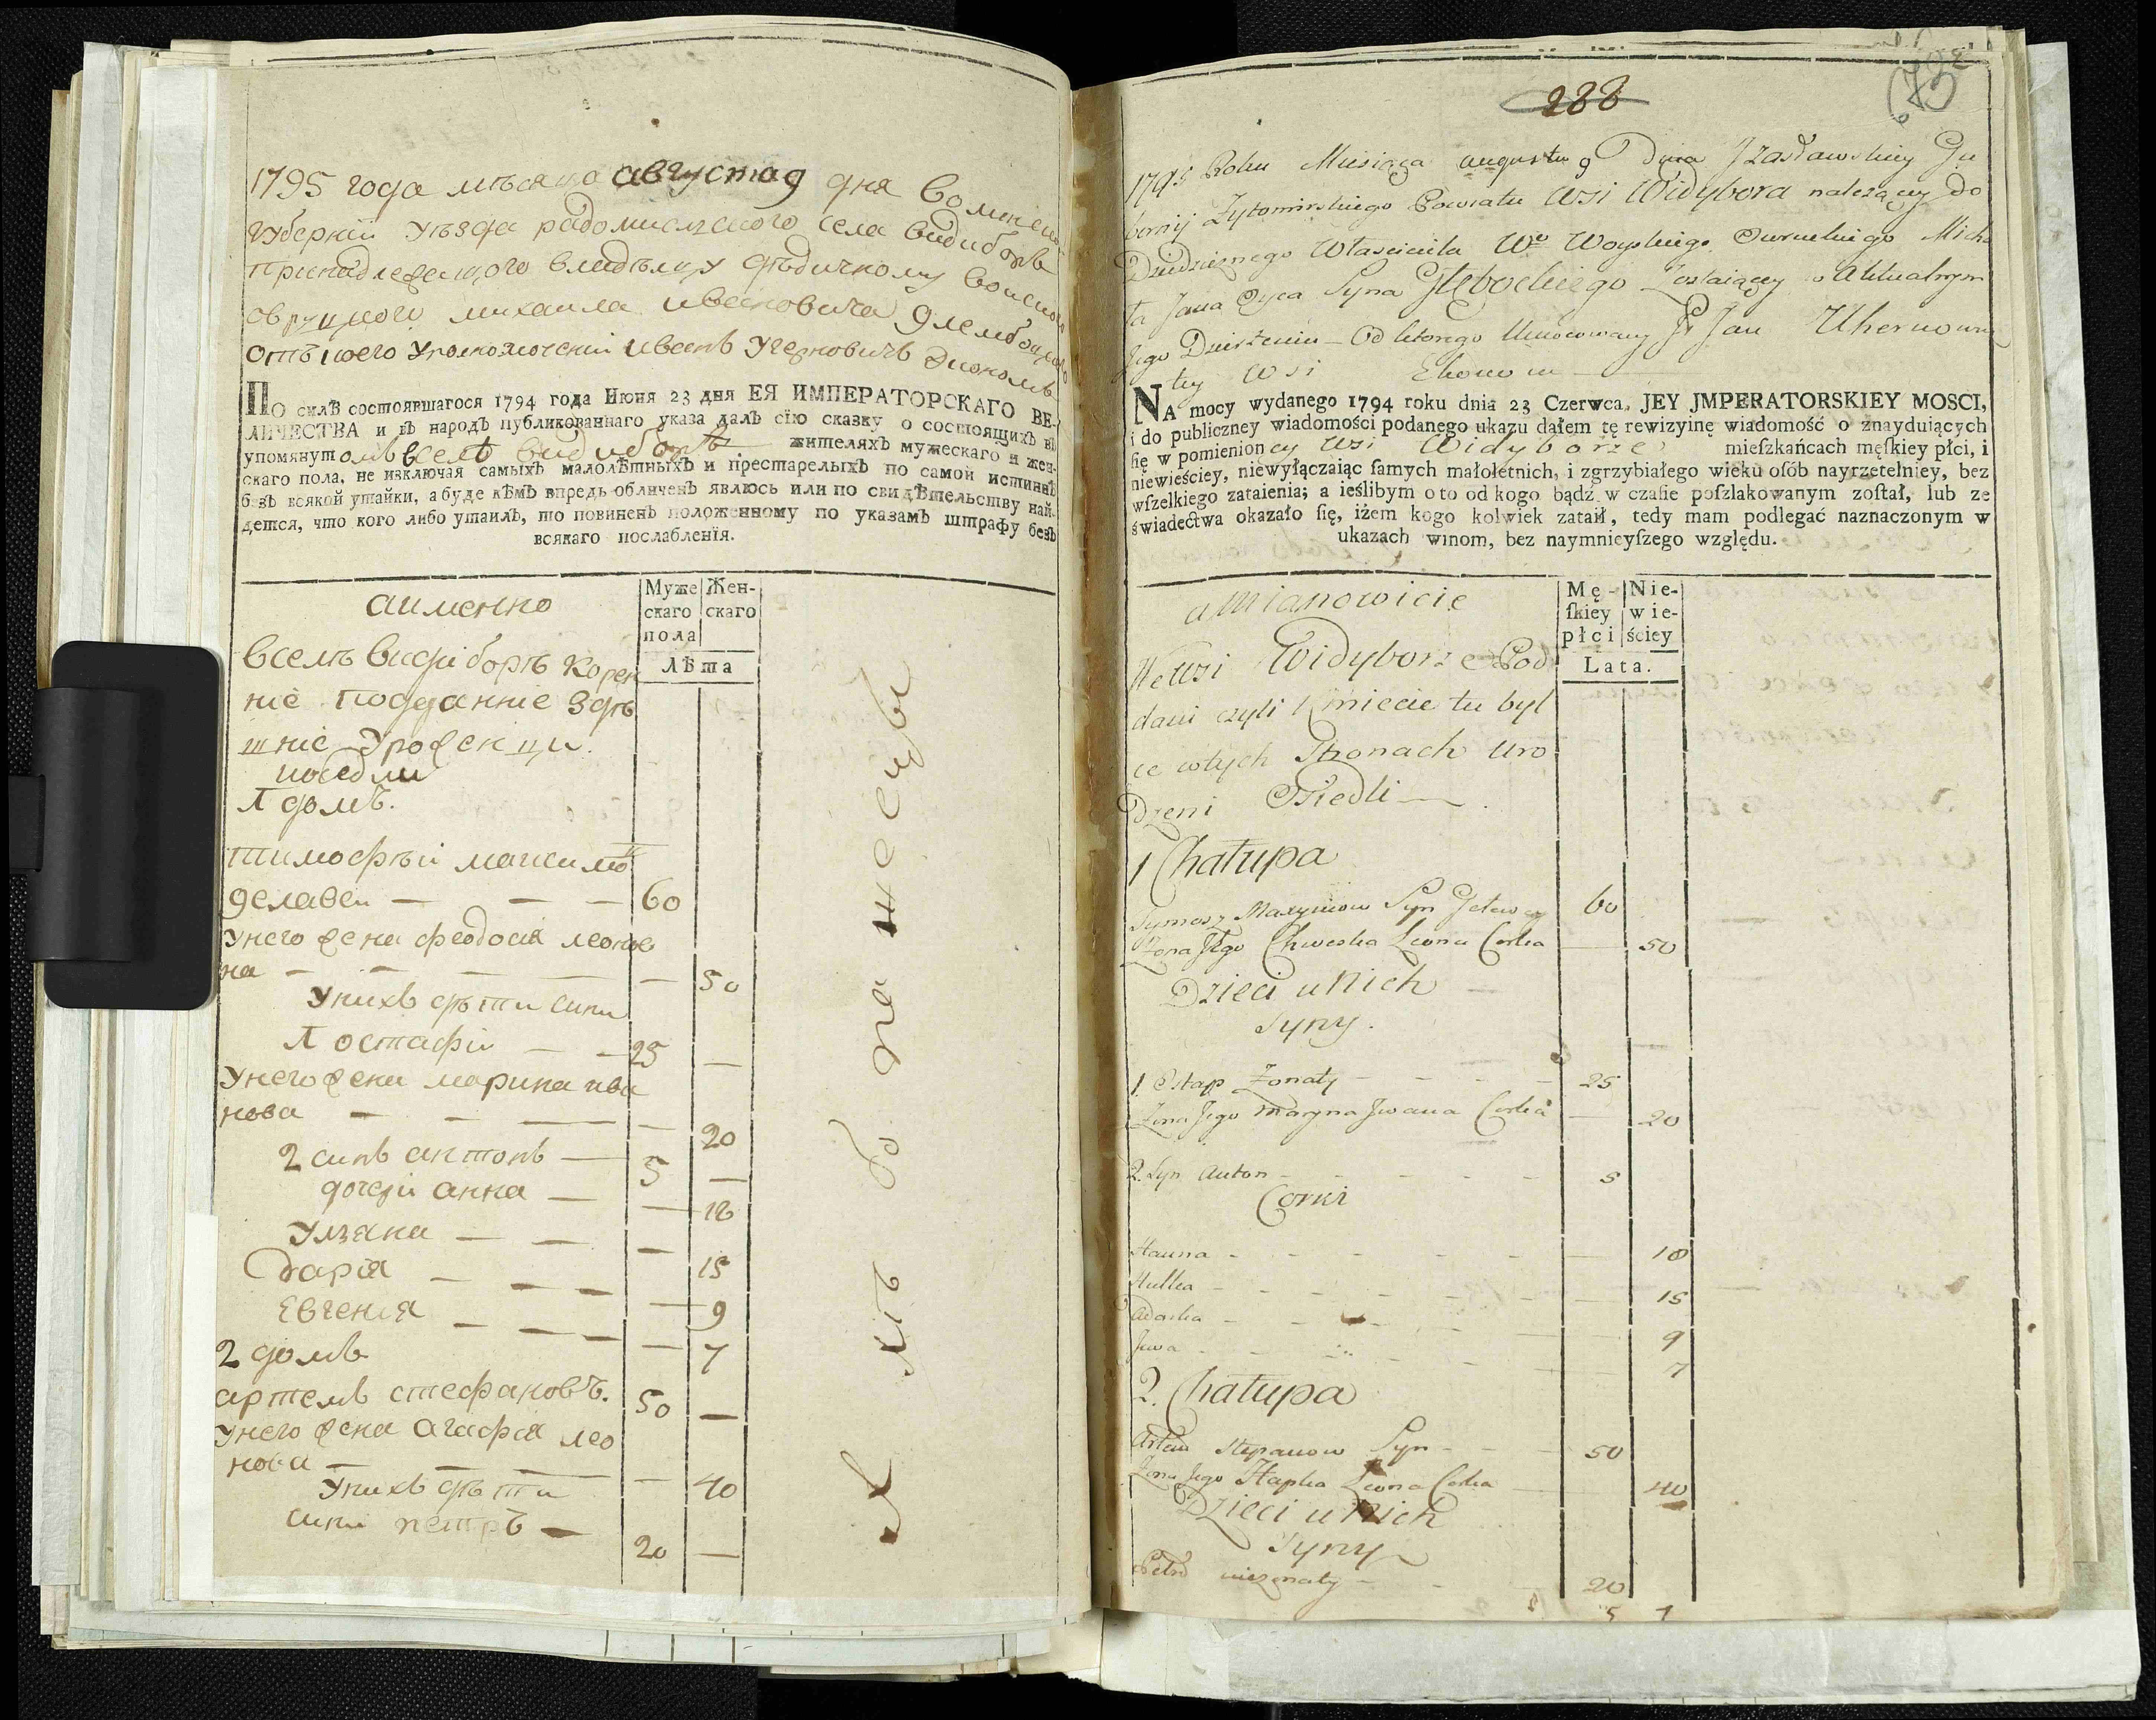 1795 года мѣсяца августа 9 дня Волинской
губерніи уѣзда радомислского села видибора
принадлежащого владѣлцу дѣдичному войскому
овруцкому михаила ивановича глембоцкого
отъ коего уполномоченій иванъ ухерновичъ экономъ
По силѣ состоявшагося 1794 года Июня 23 дня ЕЯ ИМПЕРАТОРСКАГО ВЕ-
ЛИЧЕСТВА и въ народъ публикованнаго указа далъ сїю сказку о состоящихъ въ
упомянутомъ селѣ видиборѣ жителяхъ мужескаго и жен-
скаго пола, не изключая самыхъ малолѣтныхъ и престарелыхъ по самой истиннѣ
безъ всякой утайки, а буде кѣмъ впредь обличенъ явлюсь или по свидѣтельству най-
дется, что кого либо утаилъ, то повиненъ положенному по указамъ штрафу безъ
всякаго послабленїя.
аименно
Муже скаго пола
Жен- скаго
Лѣта
Вселѣ видіборѣ корен
ніе подданніе здѣ
шніе уроженци
поседли
1 домъ.
тимофѣй максимо
желавей — — — 60
унего жена феодосія леоно
на — — — — — 50
унихъ дѣти сини
1 остафій — — 25 —
унего жена марина ива
нова — — — — 20
2 синъ антонъ — 5 —
дочери анна — — 18
Уляна — — — 15
Дарія — — — — 9
Евгенія — — — — 7
2 домъ
артемъ стефановъ. 50 —
унего жена агафія лео
нова — — — — 40
унихъ дѣти
сини петръ — 20 —
288
1795 Roku Miesiąca augusta 9 Dnia Jzasławskiey Gu
bernij Zytomirskiego Powiatu Wsi Widybora należący do
Dziedzicznego Własciciela Wo Woyskiego Owruckiego Micha
ła Jana Oyca Syna Głębockiego Zostaiącey o Aktualnym
Jego Dzierżeniu — Od ktorego Umocowany JP Jan Uhernowicz
tey Wsi Ekonom —
NA mocy wydanego 1794 roku dnia 23 Czerwca, JEY JMPERATORSKIEY MOSCI,
i do publiczney wiadomości podanego ukazu dałem tę rewizyinę wiadomość o znayduiących
ſię w pomienioney Wsi Widyborze mieſzkańcach męſkiey płci, i
niewieściey, niewyłączaiąc ſamych małoletnich, i zgrzybiałego wieku oſób nayrzetelniey, bez
wſzelkiego zataienia; a ieślibym o to od kogo bądź w czaſie poſzlakowanym zoſtał, lub ze
świadectwa okazało ſię, iżem kogo kolwiek zataił, tedy mam podlegać naznaczonym w
ukazach winom, bez naymnieyſzego względu.
aMianowicie
Mę- ſkiey płci
Nie- wie- ściey
Lata.
We Wsi Widyborze Pod
dani czyli Kmiecie tu był
ce wtych Stronach Uro
dzeni Osiedli —
1 Chałupa
Tymosz Maxymow Syn 60
Zona Jego Chweska Leona Corka — 50
Dzieci uNich —
Syny.
1. Ostap Zonaty — — — 25
Zona Jego Maryna Jwana Corka — 20
2. Syn Anton — — — — 5
Corki
Hanna — — — — 18
Hulka — — — — 15
Adarka — — — — 9
Jewa — — — — 7
2. Chałupa
Artem Stepanow Syn — — 50
Zona Jego Hapka Leona Corka — 40
Dzieci uNich
Syny
Petro niezonaty — — 20
5 7